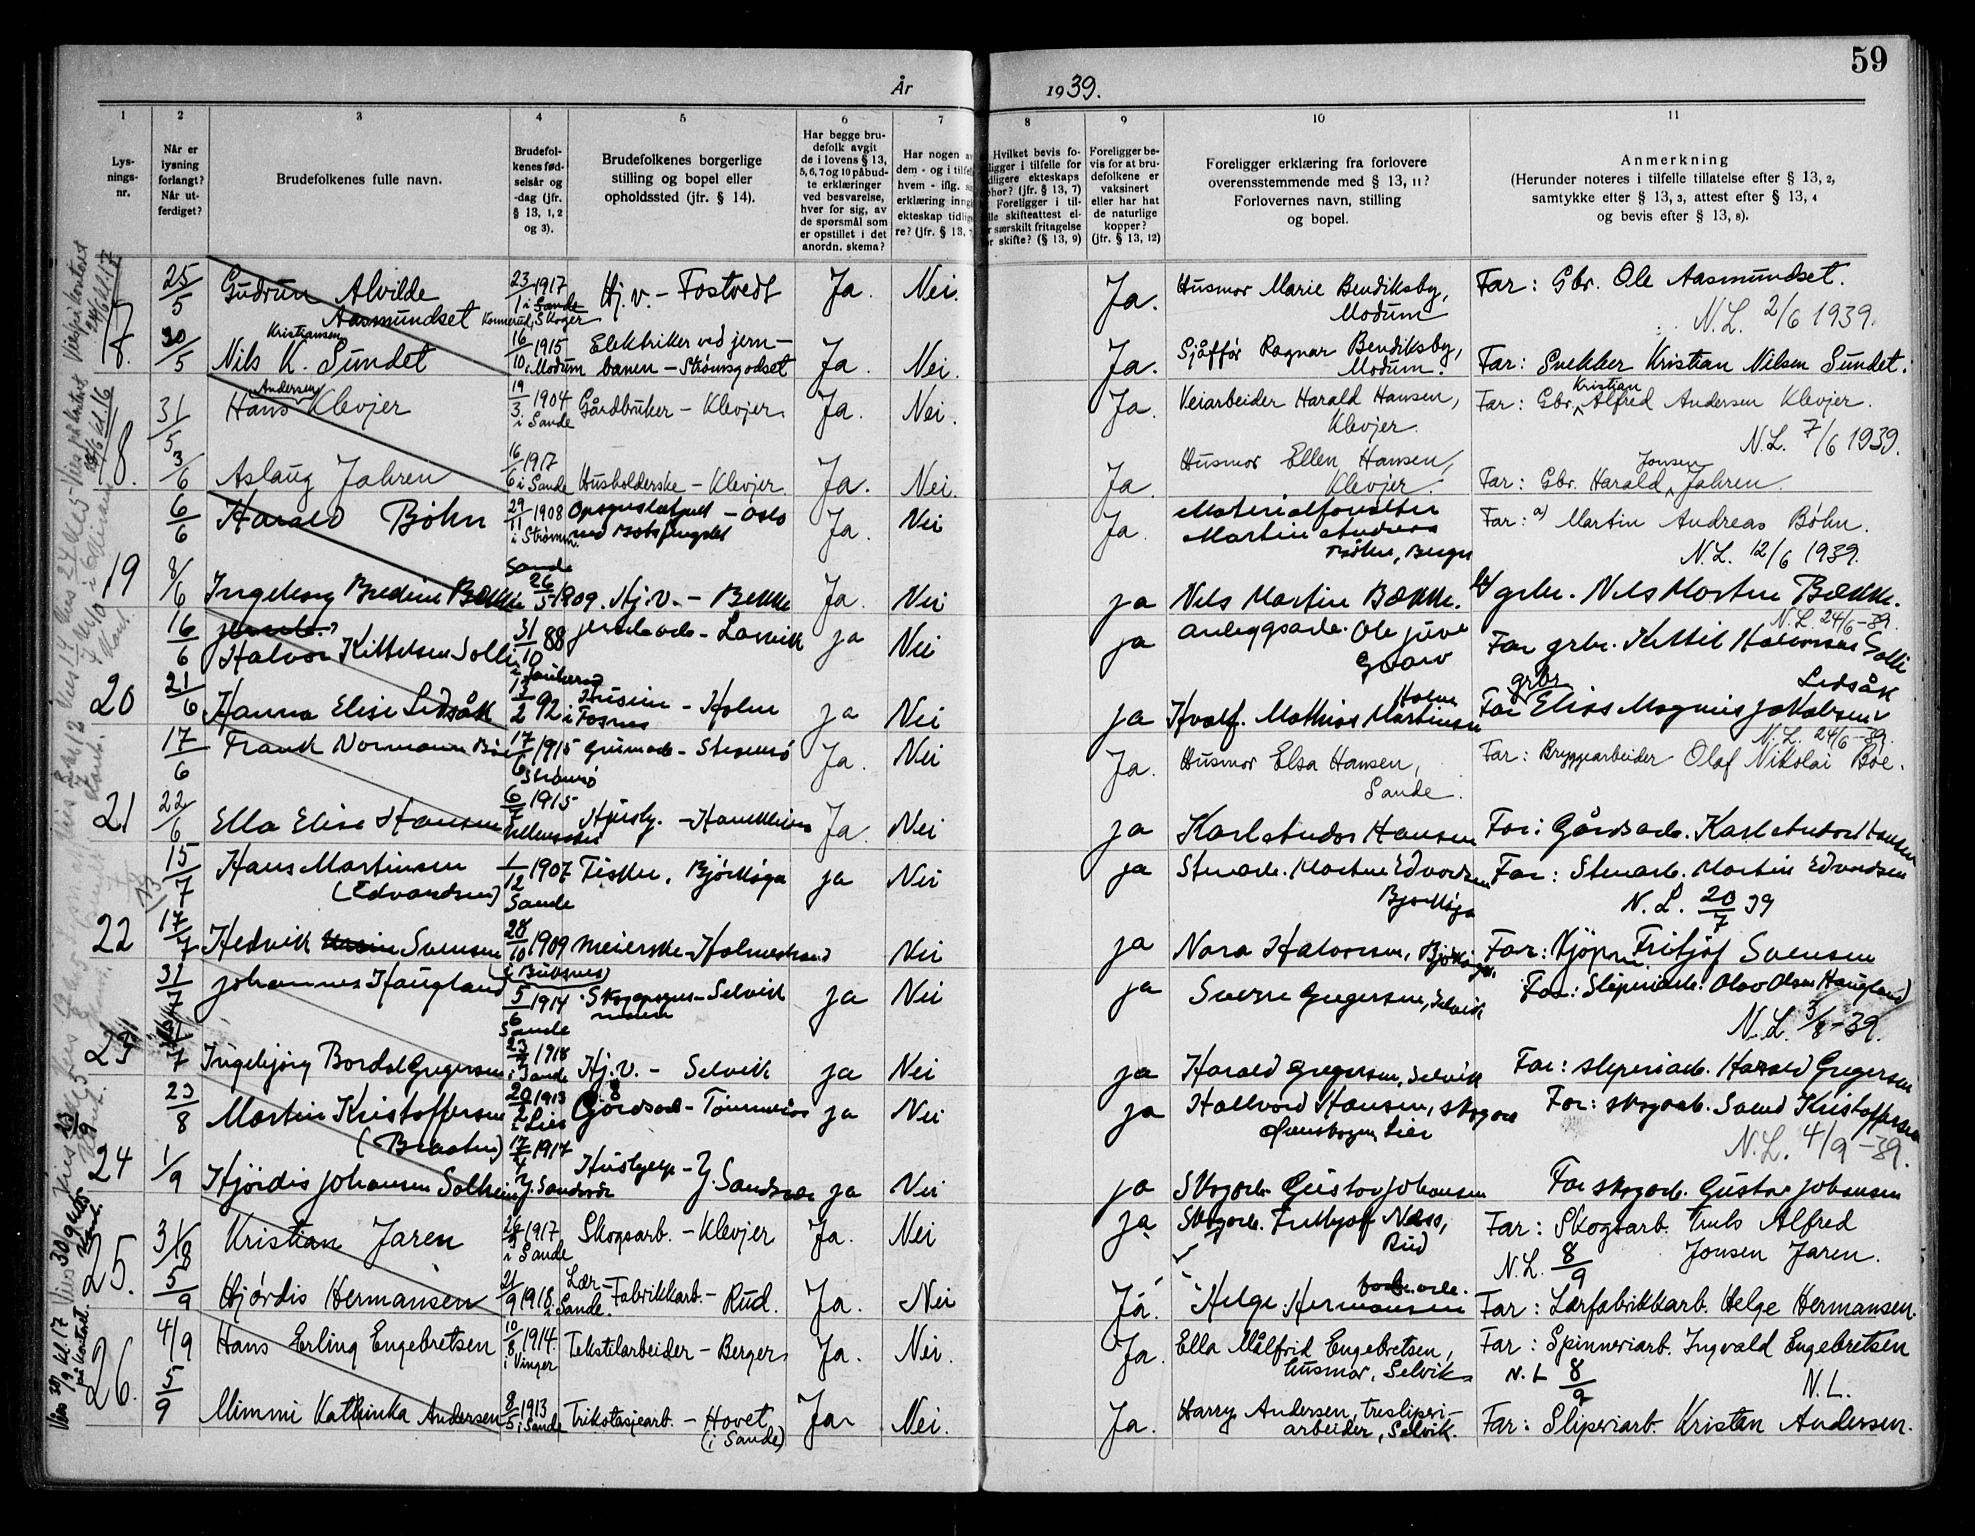 59
År 1939.
1 2 3 4 5 6 7 8 9 10 11
Lys-
nings-
nr.
Når er
lysning
forlangt?
Når ut-
ferdiget?
Brudefolkenes fulle navn.
Brudefol-
kenes fød-
selsår og
-dag (jfr.
§ 13, 1, 2
og 3).
Brudefolkenes borgerlige
stilling og bopel eller
opholdssted (jfr. § 14).
Har begge bru-
defolk avgit
de i lovens § 13,
5, 6, 7 og 10 påbud-
te erklæringer
ved besvarelse,
hver for sig, av
de spørsmål som
er opstillet i det
anordn. skema?
Har nogen av
dem - og i tilfelle
hvem - iflg. sin
erklæring inngått
ekteskap tidlige-
re? (jfr. § 13,
Hvilket bevis fo-
ligger i tilfelle for
dligere ekteskaps
phør? (jfr. § 13, 7)
Foreligger i til-
lle skifteattest el-
r særskilt fritagelse
or skifte? (§ 13, 9)
Foreligger be-
vis for at bru-
defolkene er
vaksinert
eller har hat
de naturlige
kopper?
(jfr. § 13, 12)
Foreligger erklæring fra forlovere
overensstemmende med § 13, 11?
Forlovernes navn, stilling
og bopel.
Anmerkning
(Herunder noteres i tilfelle tillatelse efter § 13, 2,
samtykke efter § 13, 3, attest efter § 13, 4
og bevis efter § 13, 8).
17. 25/5 Gudrun Alvilde Aasmundset 23/1 1917 i Sande Konnerud, Skoger Hj.v. - Fostvedt Ja. Nei. Ja. Husmor Marie Bendiksby, Modum Far: Gbr. Ole Aasmundset.
N.L. 2/6 1939.
30/5 Nils K. Kristiansen Sundet 16/10 1915 i Modum Elektriker ved jern-banen - Strømsgodset Ja. Nei. Ja. Sjåffør Ragnar Bendiksby, Modum. Far: Snekker Kristian Nilsen Sundet.
18. 31/5 Hans Andersen Klevjer 19/3 1904 i Sande Gårdbruker - Klevjer Ja. Nei. Ja. Veiarbeider Harald Hansen, Klevjer. Far: Gbr. Kristian Alfred Andersen Klevjer.
N.L. 7/6 1939.
3/6 Aslaug Jahren 16/6 1917 i Sande Husholderske - Klevjer. Ja. Nei. Ja. Husmor Ellen Hansen, Klevjer. Far: Gbr. Harald Jonsen Jahren.
19 6/6 Harald Bøhn 29/11 1908 i Strømm. - Oslo Ja. Nei Ja. Materialforvalter Martin Andreas Bøhn, Berger Far: a) Martin Andreas Bøhn.
N.L. 12/6 1939.
8/6 Ingeborg Bredine Bække Sande 26/5 1909. Hj.v. - Bekke Ja. Nei ja Nels Martin Bække. b) grbr. Nels Martin Bække.
N.L. 24/6-39.
20 16/6 Halvor Kittelsen Solli 31/10 88 - Larvik ja Nei ja anleggsarb. Ole Juve Far grbr. Kittil Halvorsen Solli
21/6 Hanna Elise Lidsåk 1/2 92 i Fosnes - Holm ja Nei ja Mathias Martinsen Holm Far grbr Elias Magnus Jakobsen Lidsåk
N.L. 24/6-39.
21 17/6 Frank Normann Böe 17/6 1915 Strømsø Grusarb. - Strømsø Ja. Nei Ja. Husmor Elsa Hansen, Sande. Far: Bryggearbeider Olaf Nikolai Böe.
22/6 Ella Elise Hansen 6/7 1915 Ja. Nei ja Karl Andor Hansen Far: Gårdsarb. Karl Andor Hansen
22 15/7 Hans Martinsen (Edvardsen) 1/12 1907 Sande Fisker, Bjerkøya ja Nei ja Stenarb. Martin Edvardsen Bjerkøya Far: Stenarb. Martin Edvardsen
N.L. 20/7 39
17/7 Hedvik Svensen 28/10 1909 (i Buksnes) Meierske - Holmestrand Nei ja Nora Halvorsen, Bjerkøya. Far: Kjøpm. Fritjof Svensen
23 31/7 Johannes Haugland 5/6 1914 Sande Skogopsynsmann - Selvik ja Nei ja Sverre Gregersen, Selvik Far: Sliperiarb. Olav Olsen Haugland
N.L. 3/8-39.
31/7 Ingebjørg Bordal Gregersen 23/2 1918 i Sande Hj.v. - Selvik ja Nei ja Harald Gregersen, Selvik Far: sliperiarb. Harald Gregersen
24 23/8 Martin Kristoffersen (Braaten) 20/2 1913 i Lier Gårdsarb - ja Nei ja Hallvard Hansen, skogarb Lier Far: skogarb. Svend Kristoffersen
N.L. 4/9-39.
1/9 Hjördis Johansen Solheim 17/4 1914 Y. Sandsvær Hushjelp - Y. Sandsvær ja Nei ja Skogarb. Gustav Johansen Far skogarb. Gustav Johansen
25. 31/8 Kristian Jaren 26/3 1917 i Sande Skogsarb. - Klevjer Ja. Nei ja. Skogarb. Fridtjof Næss, Rud Far: Skogsarb. Truls Alfred Jonsen Jaren.
N.L. 8/9
5/9 Hjørdis Hermansen 21/9 1918 i Sande. Lær-Fabrikkarb. - Rud. Ja. Nei Ja. Helge Hermansen Far: Lærfabrikkarb. Helge Hermansen.
26. 4/9 Hans Erling Engebretsen 10/8 1914. i Vinger Tekstilarbeider - Berger Ja. Nei. Ja. Ella Målfrid Engebretsen, husmor, Selvik Far: Spinneriarb. Ingvald Engebretsen
N.L 8/9 N.L.
5/9 Mimmi Kathinka Andersen 8/5 1913 i Sande Trikotasjearb. - Hovet (i Sande) Ja. Nei. Ja. Harry Andersen, tresliperi-arbeider, Selvik. Far: Sliperiarb. Kristen Andersen.